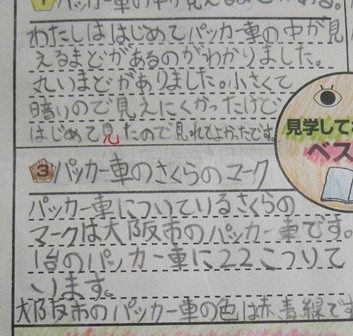 わたしははじめてパッカー車の中が見
えるまどがあるのがわかりました。
丸いまどがありました。小さくて
暗いので見えにくかったけど
はじめて見たので見れてよかったです。
見学して
ベス
3 パッカー車のさくらのマーク
パッカー車についているさくらの
マークは大阪市のパッカー車です。
1台のパッカー車に22こついて
います。
大阪市のパッカー車の色は赤青緑です